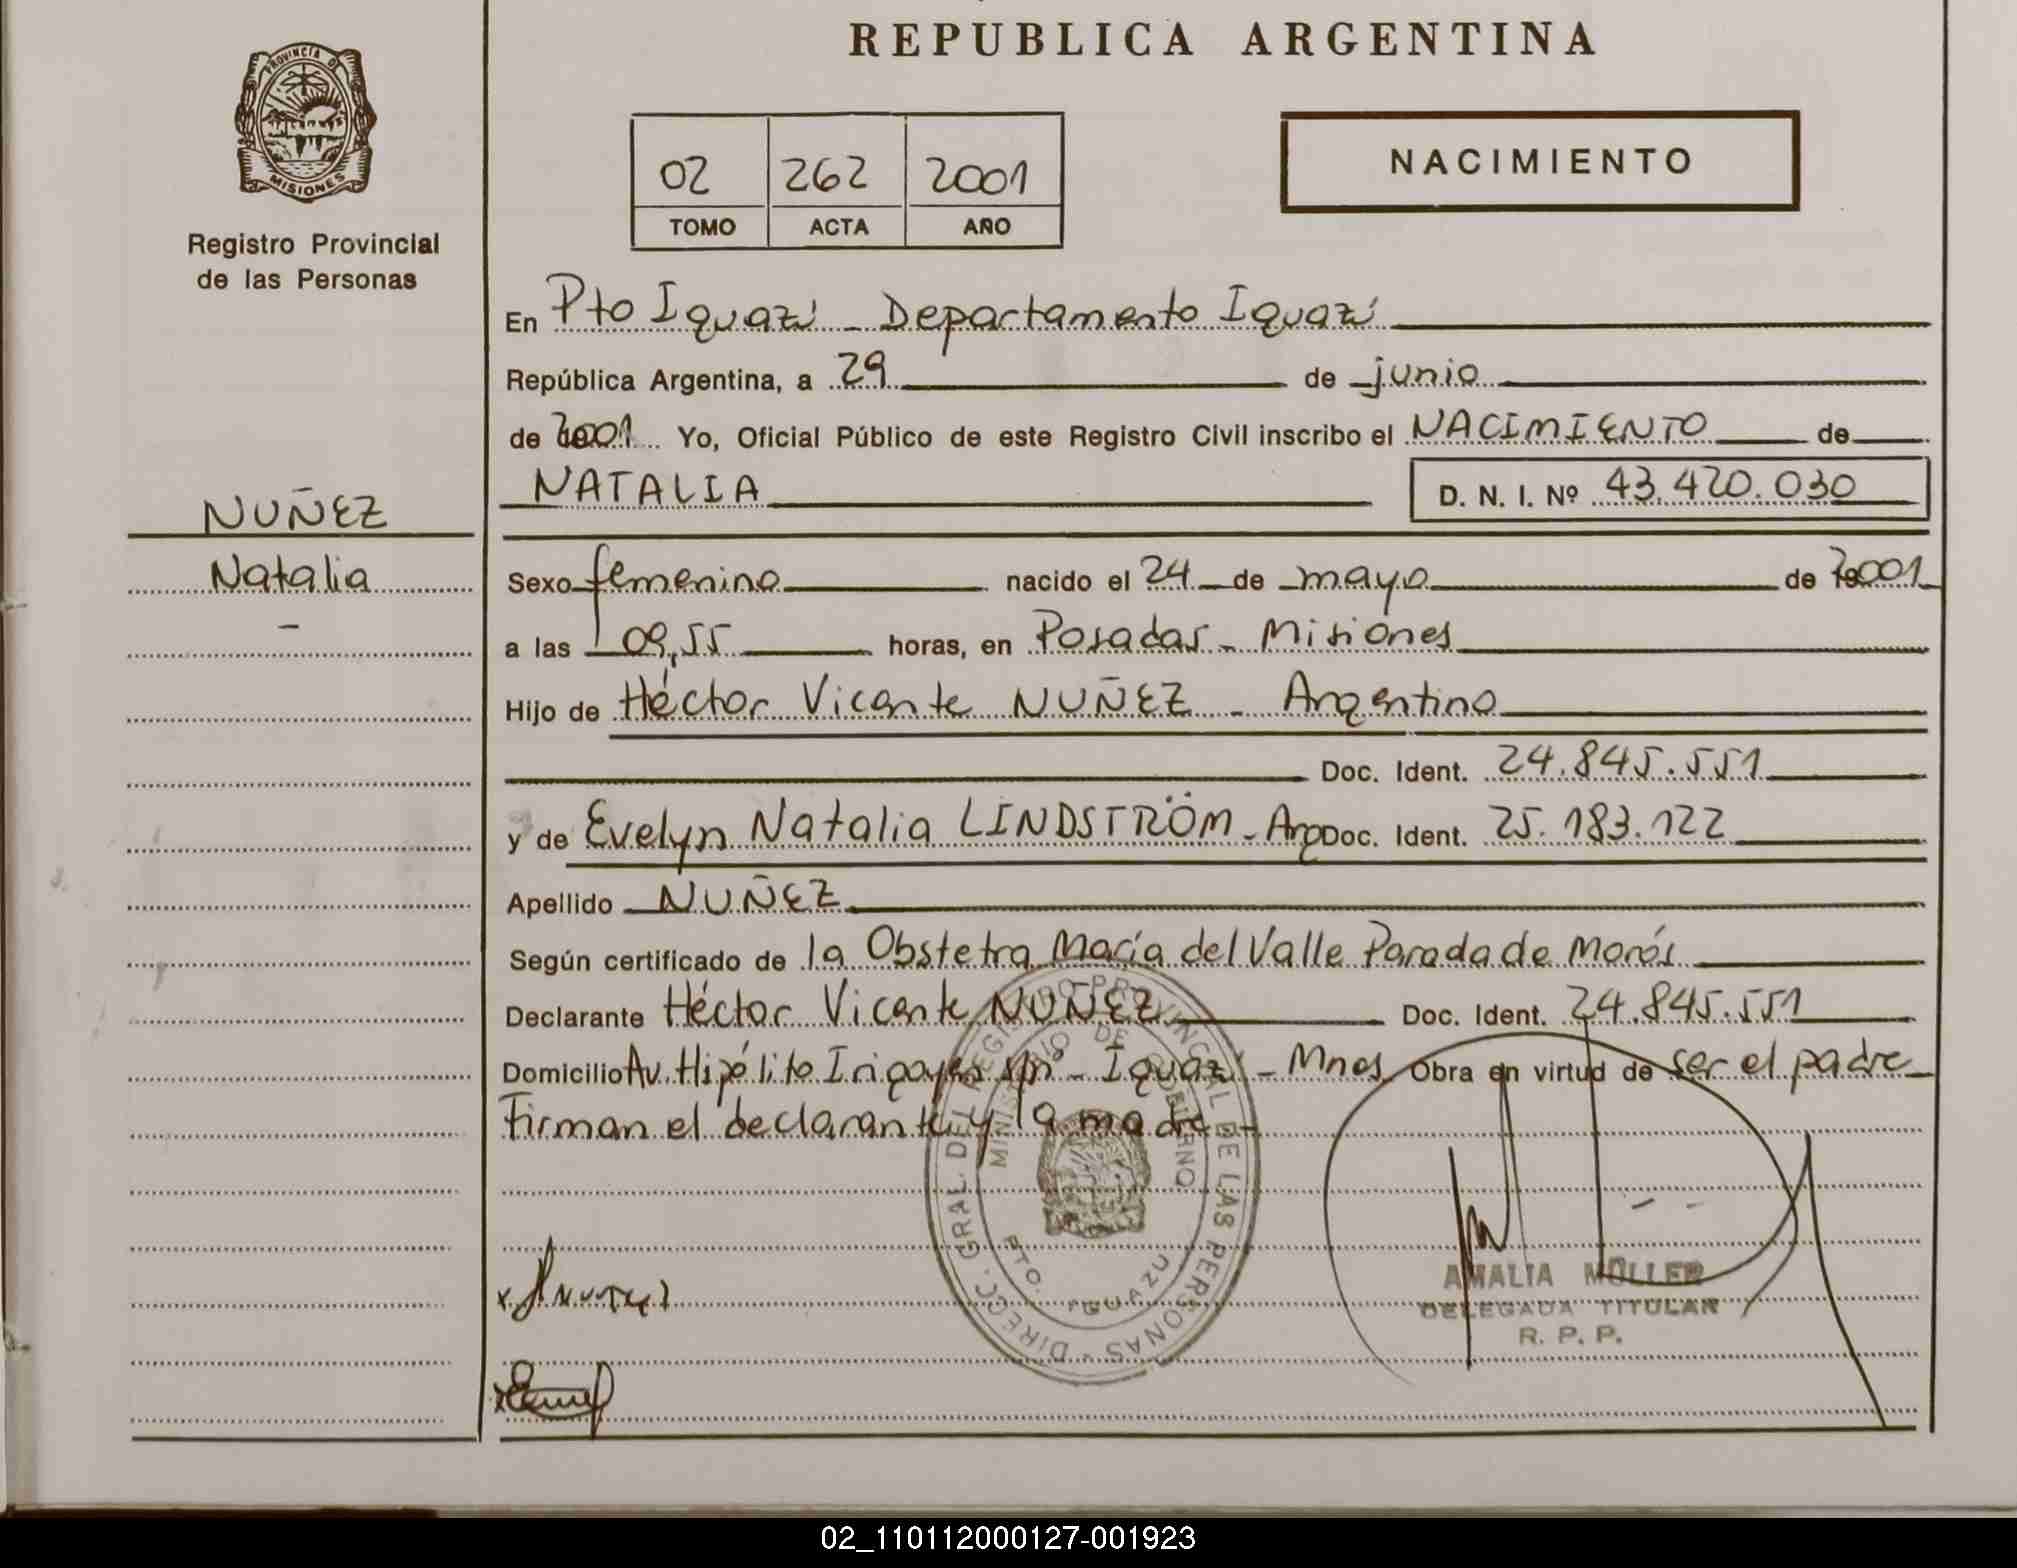 REPUBLICA ARGENTINA
PROVINCIA DE
MISIONES
Registro Provincial
de las Personas
02 262 2001
TOMO ACTA AÑO
NACIMIENTO
En Pto Iguazú - Departamento Iguazú
República Argentina, a 29 de junio
de 2001 Yo, Oficial Público de este Registro Civil inscribo el NACIMIENTO de
NATALIA D. N. I. Nº 43.420.030
NUÑEZ
Natalia
-
Sexo femenino nacido el 24 de mayo de 2001
a las 09,55 horas, en Posadas - Misiones
Hijo de Héctor Vicente NUÑEZ - Argentino
Doc. Ident. 24.845.551
y de Evelyn Natalia LINDSTRÖM - Arg Doc. Ident. 25.183.122
Apellido NUÑEZ
Según certificado de la Obstetra María del Valle Parada de Morás
Declarante Héctor Vicente NUÑEZ Doc. Ident. 24.845.551
Domicilio Av. Hipólito Irigoyen s/nº - Iguazú - Mnes Obra en virtud de ser el padre
Firman el declarante y la madre -
DIRECC. GRAL. DEL REGISTRO PROVINCIAL DE LAS PERSONAS
MINISTERIO DE GOBIERNO
PTO. IGUAZU
AMALIA MÜLLER
DELEGADA TITULAR
R. P. P.
02_110112000127-001923